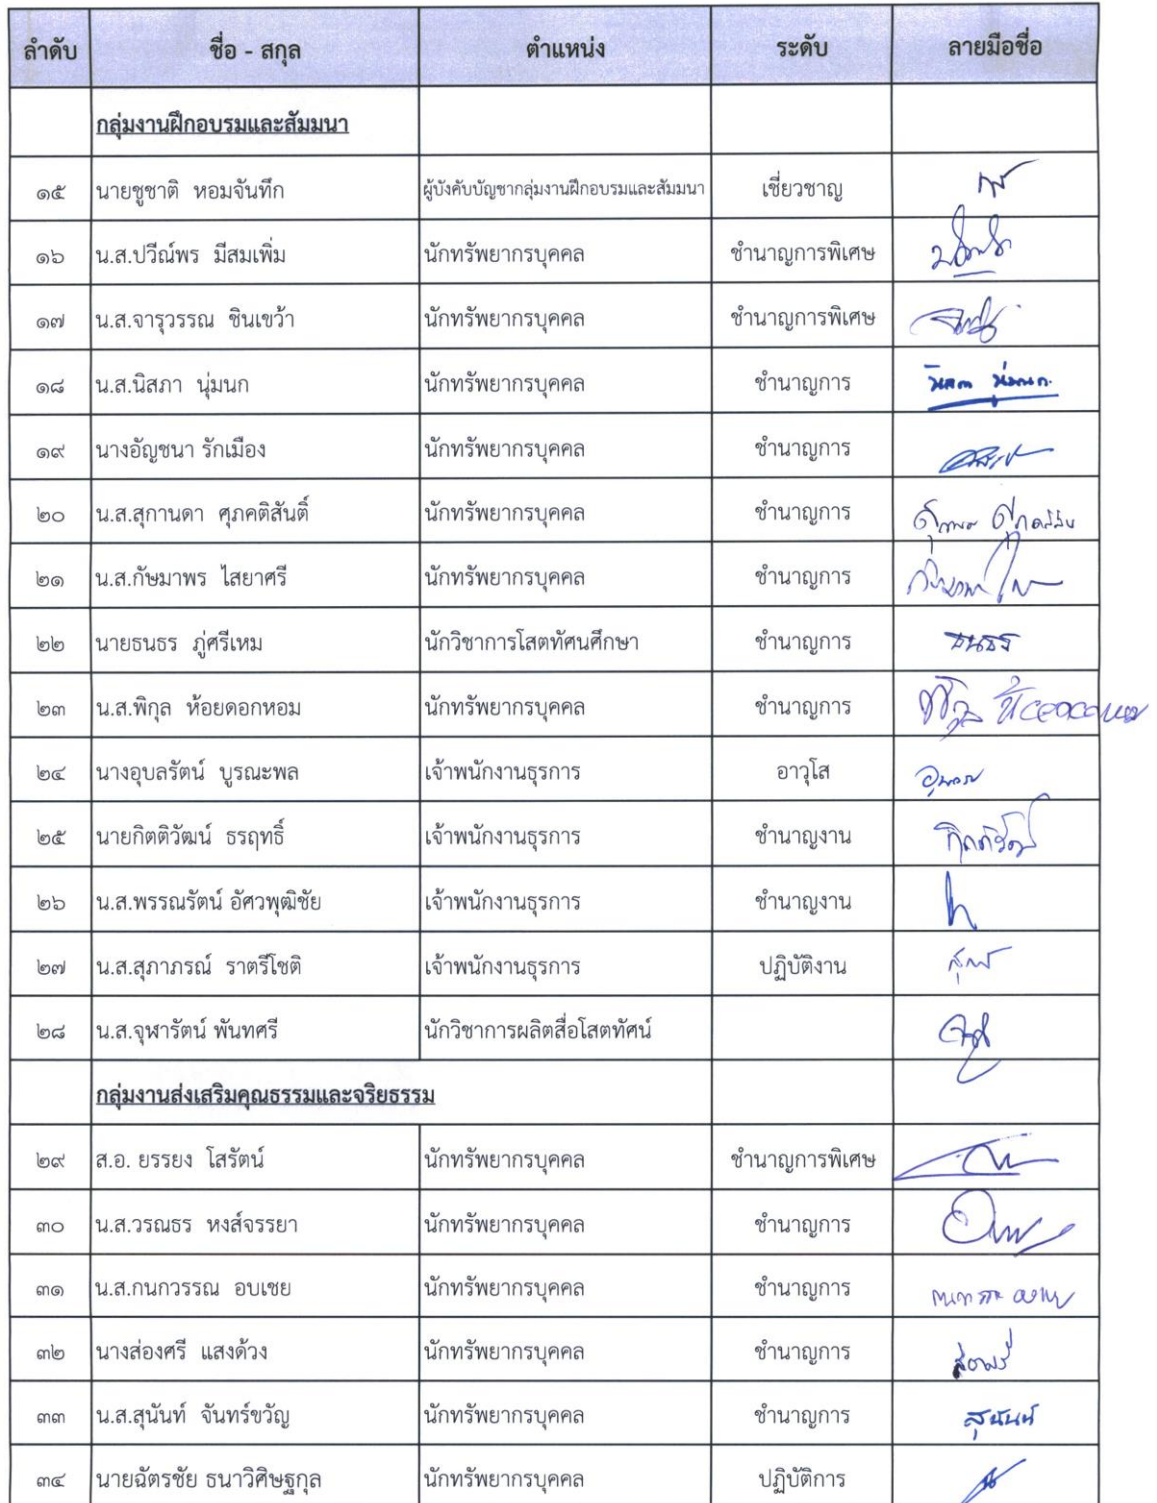 ลำดับ ชื่อ - สกุล ตำแหน่ง ระดับ ลายมือชื่อ
กลุ่มงานฝึกอบรมและสัมมนา
๑๕ นายชูชาติ หอมจันทึก ผู้บังคับบัญชากลุ่มงานฝึกอบรมและสัมมนา เชี่ยวชาญ
๑๖ น.ส.ปวีณ์พร มีสมเพิ่ม นักทรัพยากรบุคคล ชำนาญการพิเศษ
๑๗ น.ส.จารุวรรณ ชินเขว้า นักทรัพยากรบุคคล ชำนาญการพิเศษ
๑๘ น.ส.นิสภา นุ่มนก นักทรัพยากรบุคคล ชำนาญการ นิสภา นุ่มนก
๑๙ นางอัญชนา รักเมือง นักทรัพยากรบุคคล ชำนาญการ
๒๐ น.ส.สุกานดา ศุภคติสันติ์ นักทรัพยากรบุคคล ชำนาญการ
๒๑ น.ส.กัษมาพร ไสยาศรี นักทรัพยากรบุคคล ชำนาญการ
๒๒ นายธนธร ภู่ศรีเหม นักวิชาการโสตทัศนศึกษา ชำนาญการ ธนธร
๒๓ น.ส.พิกุล ห้อยดอกหอม นักทรัพยากรบุคคล ชำนาญการ พิกุล ห้อยดอกหอม
๒๔ นางอุบลรัตน์ บูรณะพล เจ้าพนักงานธุรการ อาวุโส
๒๕ นายกิตติวัฒน์ ธรฤทธิ์ เจ้าพนักงานธุรการ ชำนาญงาน
๒๖ น.ส.พรรณรัตน์ อัศวพุฒิชัย เจ้าพนักงานธุรการ ชำนาญงาน
๒๗ น.ส.สุภาภรณ์ ราตรีโชติ เจ้าพนักงานธุรการ ปฏิบัติงาน
๒๘ น.ส.จุฬารัตน์ พันทศรี นักวิชาการผลิตสื่อโสตทัศน์
กลุ่มงานส่งเสริมคุณธรรมและจริยธรรม
๒๙ ส.อ. ยรรยง โสรัตน์ นักทรัพยากรบุคคล ชำนาญการพิเศษ
๓๐ น.ส.วรณธร หงส์จรรยา นักทรัพยากรบุคคล ชำนาญการ
๓๑ น.ส.กนกวรรณ อบเชย นักทรัพยากรบุคคล ชำนาญการ
๓๒ นางส่องศรี แสงด้วง นักทรัพยากรบุคคล ชำนาญการ
๓๓ น.ส.สุนันท์ จันทร์ขวัญ นักทรัพยากรบุคคล ชำนาญการ สุนันท์
๓๔ นายฉัตรชัย ธนาวิศิษฐกุล นักทรัพยากรบุคคล ปฏิบัติการ